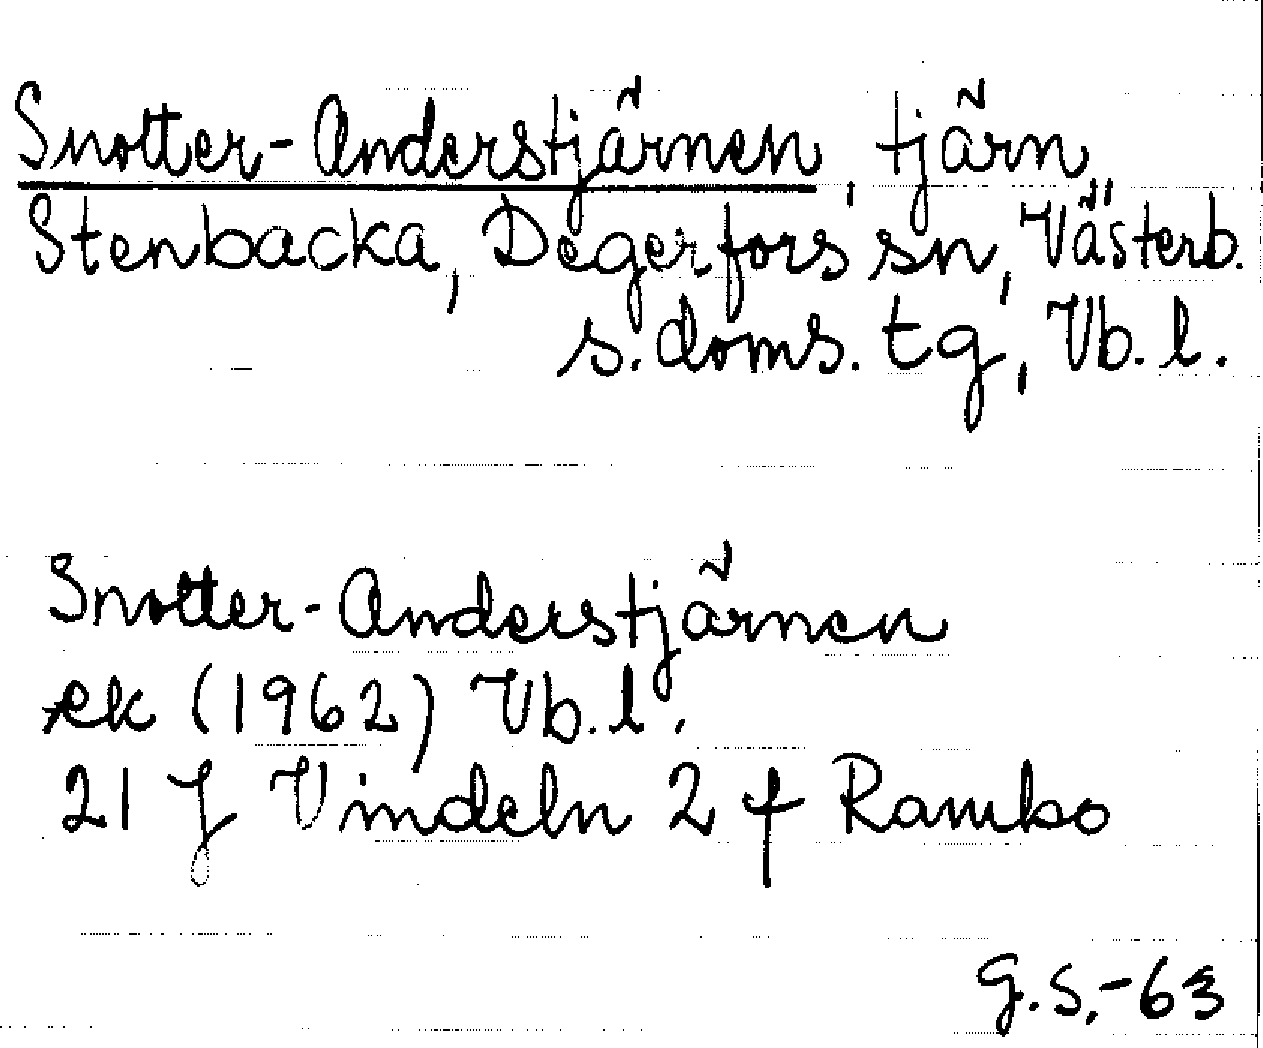 Snotter-Anderstjärnen, tjärn,
Stenbacka, Degerfors sn, Västerb.
s. doms. tg, Vb. l.
Snotter-Anderstjärnen
ek (1962) Vb. l.
21 J Vindeln 2 f Rambo
G.S.-63